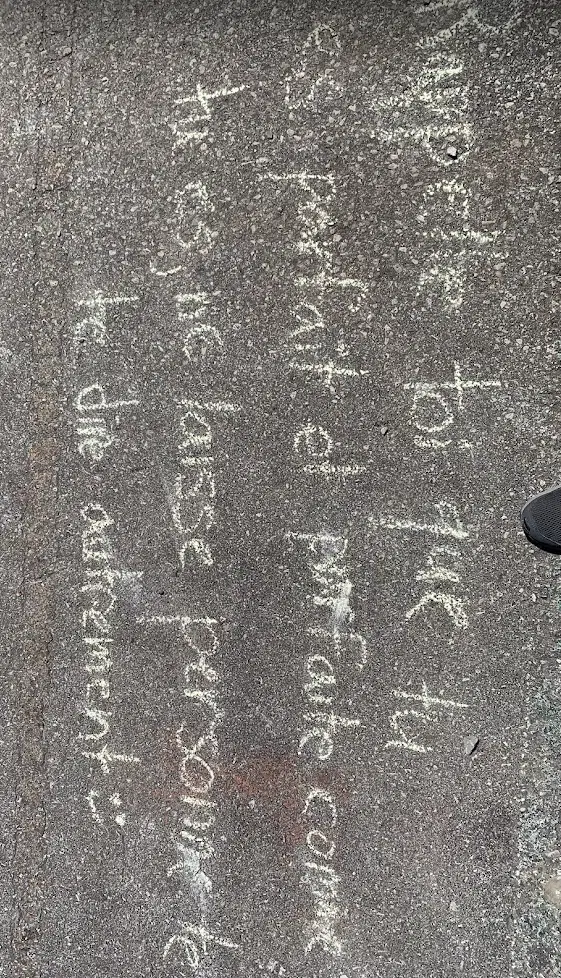 Rappelle toi que tu
es parfait et parfaite comme
tu es, ne laisse personne te
te dire autrement :)